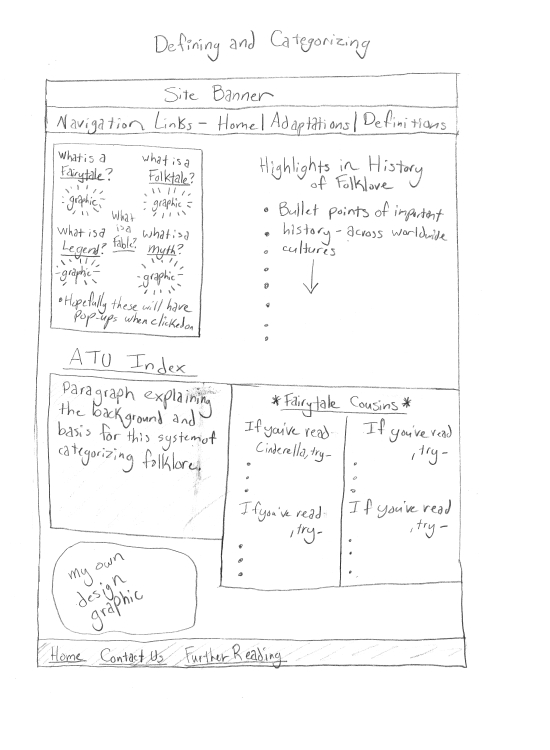 Defining and Categorizing
Site Banner
Navigation Links - Home | Adaptations | Definitions
What is a
Fairytale?
graphic
what is a
Folktale?
graphic
What
is a
Fable?
What is a
Legend?
graphic
what is a
myth?
graphic
• Hopefully these will have
pop-ups when clicked on
Highlights in History
of Folklore
• Bullet points of important
• history - across worldwide
• cultures
ATU Index
Paragraph explaining
the background and
basis for this system of
categorizing folklore.
*Fairytale Cousins*
If you've read
Cinderella, try-
If you've read
, try-
If you've read
, try-
If you've read
, try-
my own
design
graphic
Home Contact Us Further Reading